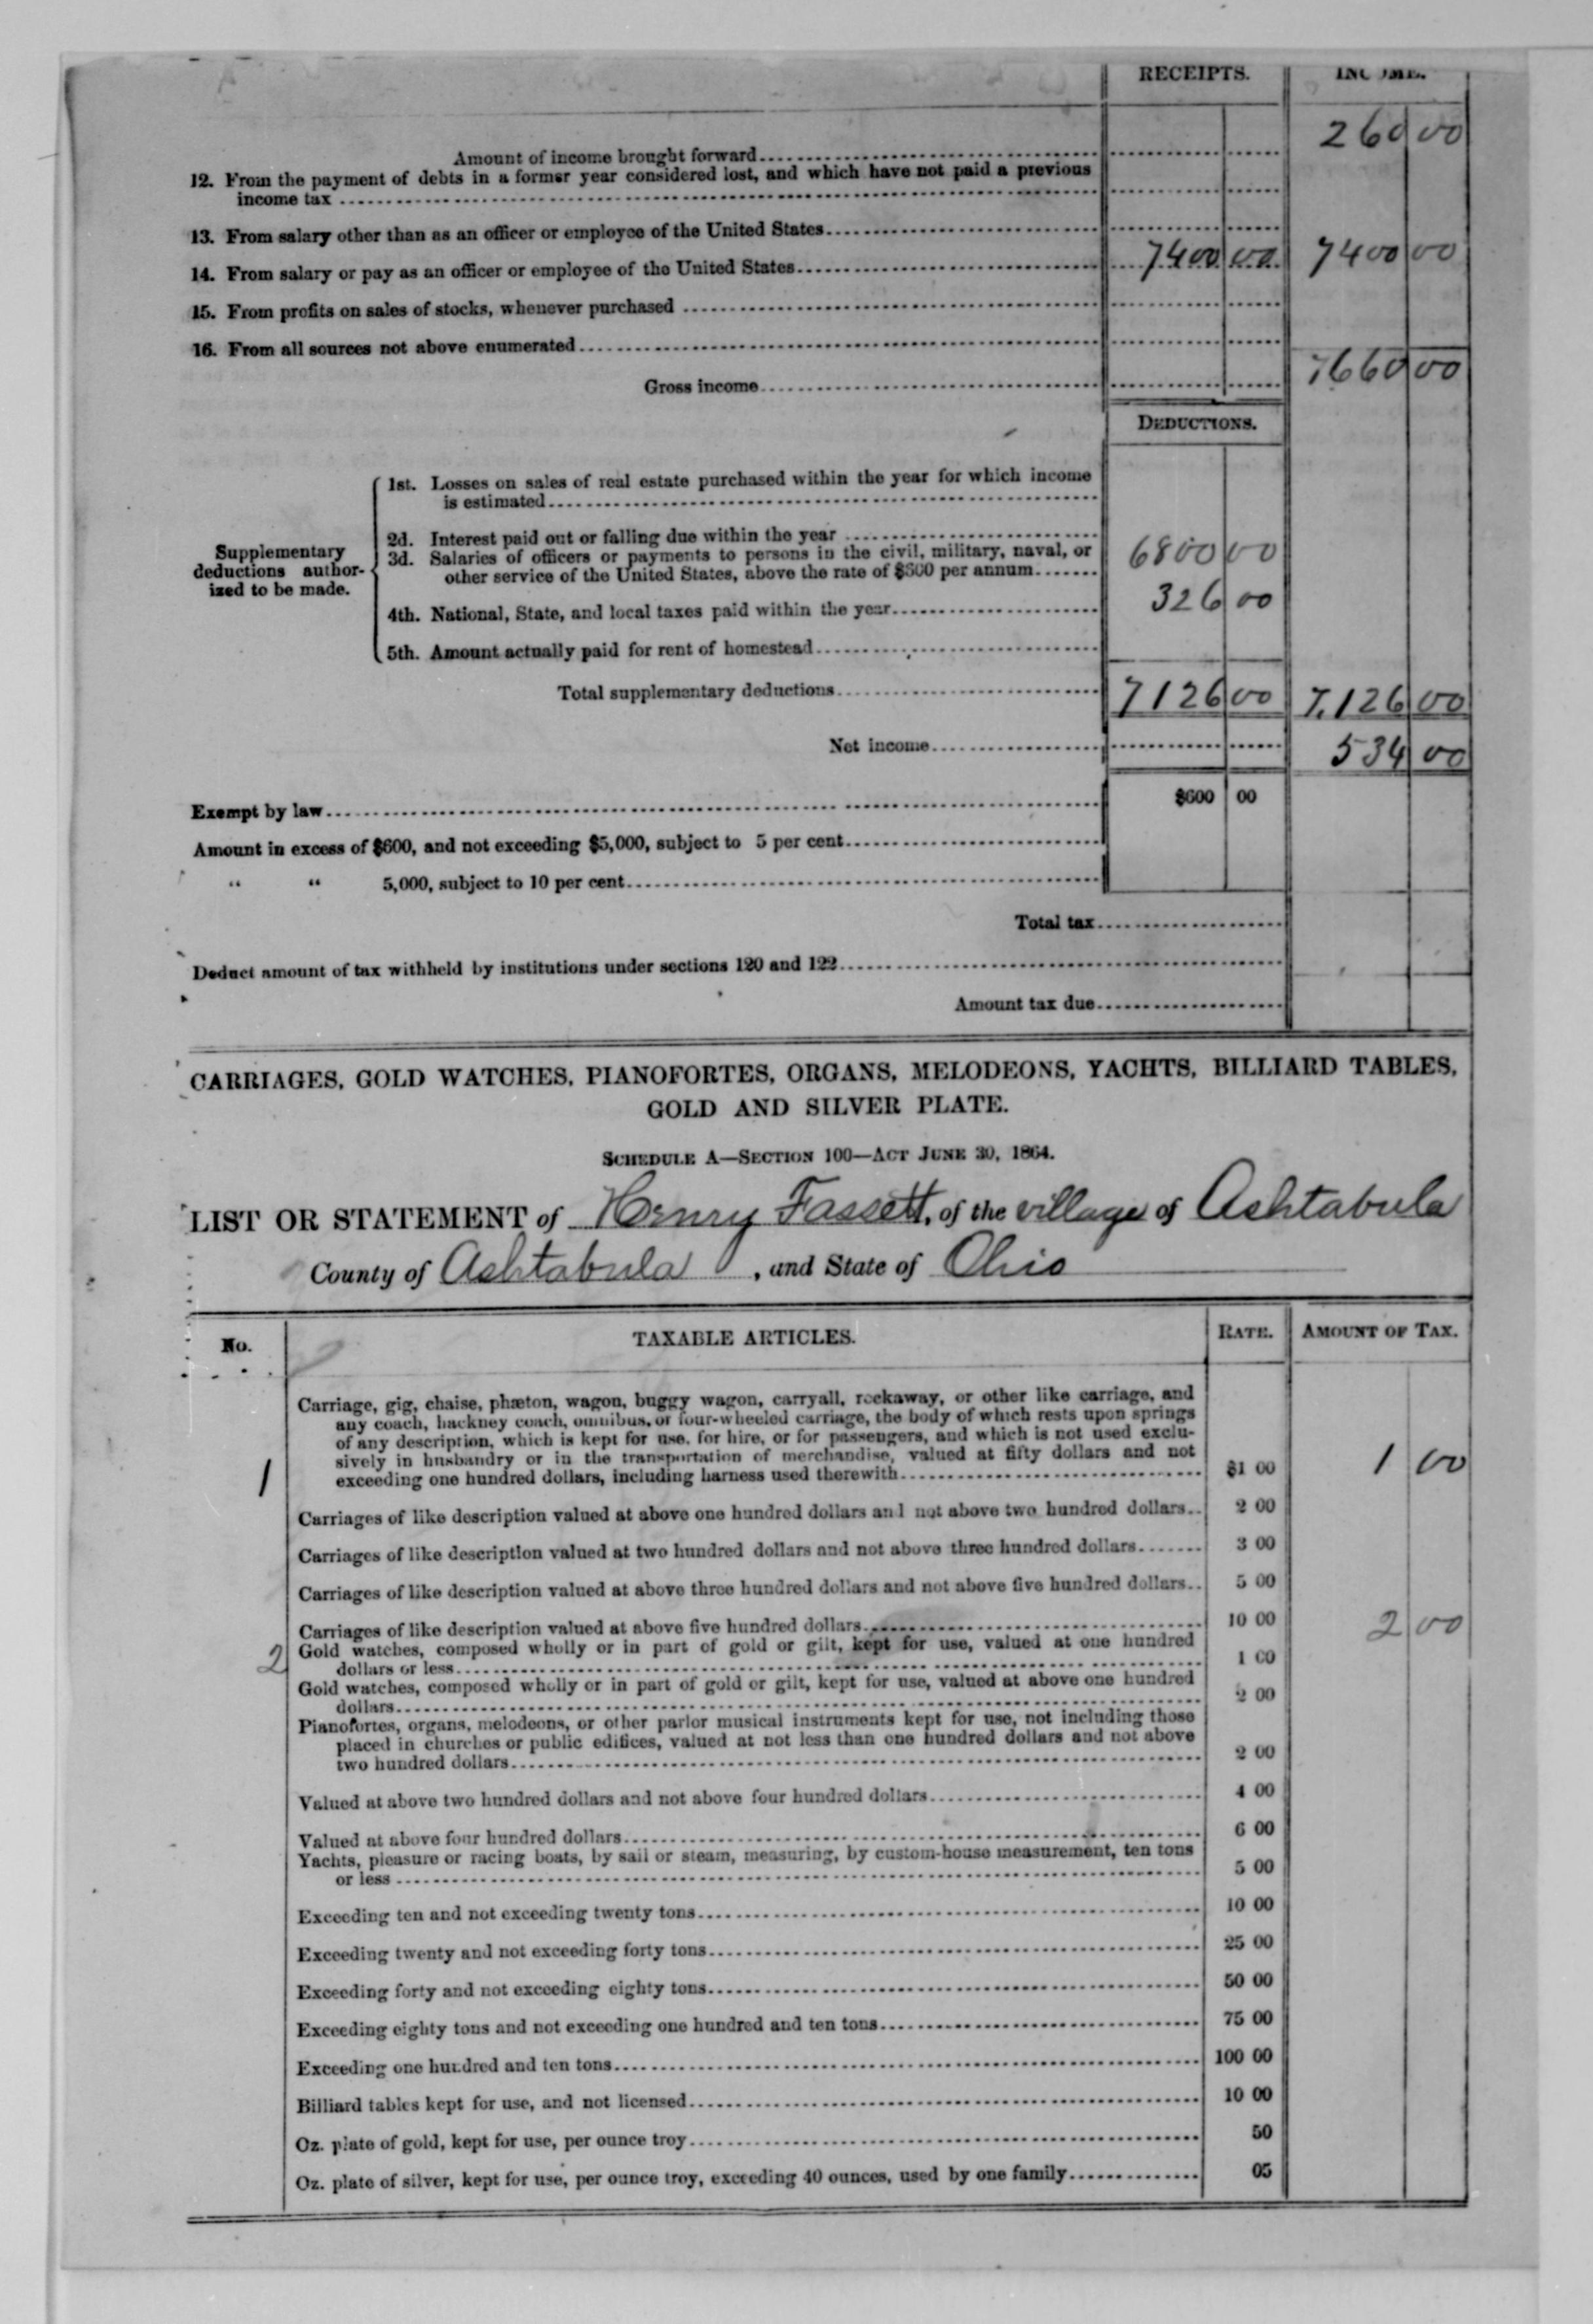 RECEIPTS. INCOME.
Amount of income brought forward 260 00
12. From the payment of debts in a former year considered lost, and which have not paid a previous
income tax
13. From salary other than as an officer or employee of the United States
14. From salary or pay as an officer or employee of the United States 7400 00 7400 00
15. From profits on sales of stocks, whenever purchased
16. From all sources not above enumerated
Gross income 7660 00
DEDUCTIONS.
Supplementary deductions author-ized to be made.
1st. Losses on sales of real estate purchased within the year for which income
is estimated
2d. Interest paid out or falling due within the year
3d. Salaries of officers or payments to persons in the civil, military, naval, or
other service of the United States, above the rate of $600 per annum 6800 00
4th. National, State, and local taxes paid within the year 326 00
5th. Amount actually paid for rent of homestead
Total supplementary deductions 7126 00 7,126 00
Net income 534 00
Exempt by law $600 00
Amount in excess of $600, and not exceeding $5,000, subject to 5 per cent
“ “ 5,000, subject to 10 per cent
Total tax
Deduct amount of tax withheld by institutions under sections 120 and 122
Amount tax due
CARRIAGES, GOLD WATCHES, PIANOFORTES, ORGANS, MELODEONS, YACHTS, BILLIARD TABLES,
GOLD AND SILVER PLATE.
SCHEDULE A—SECTION 100—ACT JUNE 30, 1864.
LIST OR STATEMENT of Henry Fassett, of the village of Ashtabula
County of Ashtabula, and State of Ohio
No. TAXABLE ARTICLES. RATE. AMOUNT OF TAX.
Carriage, gig, chaise, phæton, wagon, buggy wagon, carryall, rockaway, or other like carriage, and
any coach, hackney coach, omnibus, or four-wheeled carriage, the body of which rests upon springs
of any description, which is kept for use, for hire, or for passengers, and which is not used exclu-
sively in husbandry or in the transportation of merchandise, valued at fifty dollars and not
1 exceeding one hundred dollars, including harness used therewith $1 00 1 00
Carriages of like description valued at above one hundred dollars and not above two hundred dollars 2 00
Carriages of like description valued at two hundred dollars and not above three hundred dollars 3 00
Carriages of like description valued at above three hundred dollars and not above five hundred dollars 5 00
Carriages of like description valued at above five hundred dollars 10 00
2 Gold watches, composed wholly or in part of gold or gilt, kept for use, valued at one hundred
dollars or less 1 00 2 00
Gold watches, composed wholly or in part of gold or gilt, kept for use, valued at above one hundred
dollars 2 00
Pianofortes, organs, melodeons, or other parlor musical instruments kept for use, not including those
placed in churches or public edifices, valued at not less than one hundred dollars and not above
two hundred dollars 2 00
Valued at above two hundred dollars and not above four hundred dollars 4 00
Valued at above four hundred dollars 6 00
Yachts, pleasure or racing boats, by sail or steam, measuring, by custom-house measurement, ten tons
or less 5 00
Exceeding ten and not exceeding twenty tons 10 00
Exceeding twenty and not exceeding forty tons 25 00
Exceeding forty and not exceeding eighty tons 50 00
Exceeding eighty tons and not exceeding one hundred and ten tons 75 00
Exceeding one hundred and ten tons 100 00
Billiard tables kept for use, and not licensed 10 00
Oz. plate of gold, kept for use, per ounce troy 50
Oz. plate of silver, kept for use, per ounce troy, exceeding 40 ounces, used by one family 05